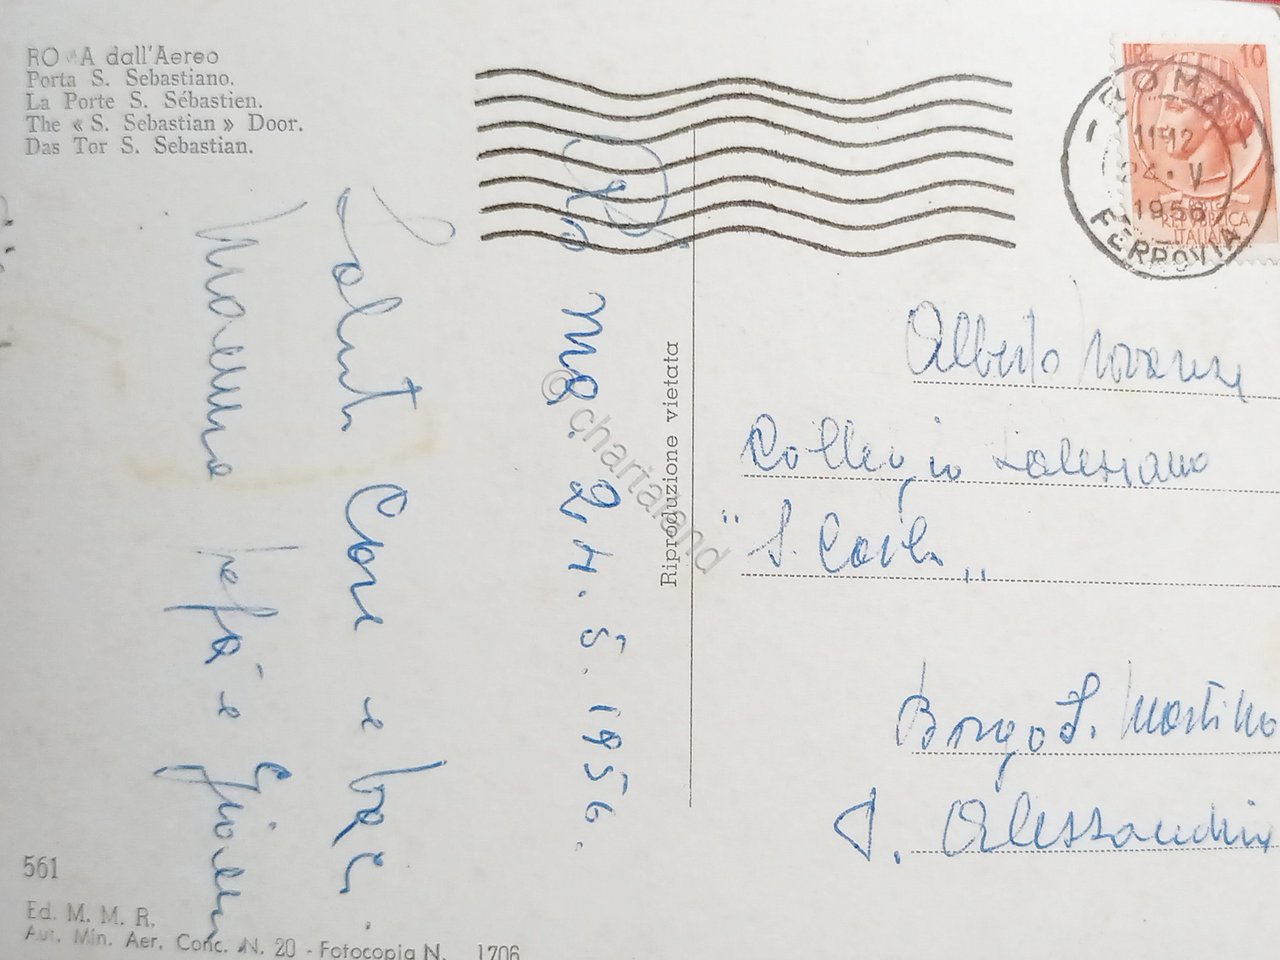 RO A dall'Aereo
Porta S. Sebastiano.
La Porte S. Sébastien.
The « S. Sebastian » Door.
Das Tor S. Sebastian.
LIRE 10
ROMA
11-12
24 · V
1956
FERROVIA
REPUBBLICA
ITALIANA
Roma. 24. 5. 1956.
Saluti Cari e baci.
Mamma Papà e
Riproduzione vietata
© chartaland
Alberto
Collegio Salesiano
"S. Carlo„
Borgo S. Martino
P. Alessandria
561
Ed. M. M. R.
Aut. Min. Aer. Conc. N. 20 - Fotocopia N. 1706